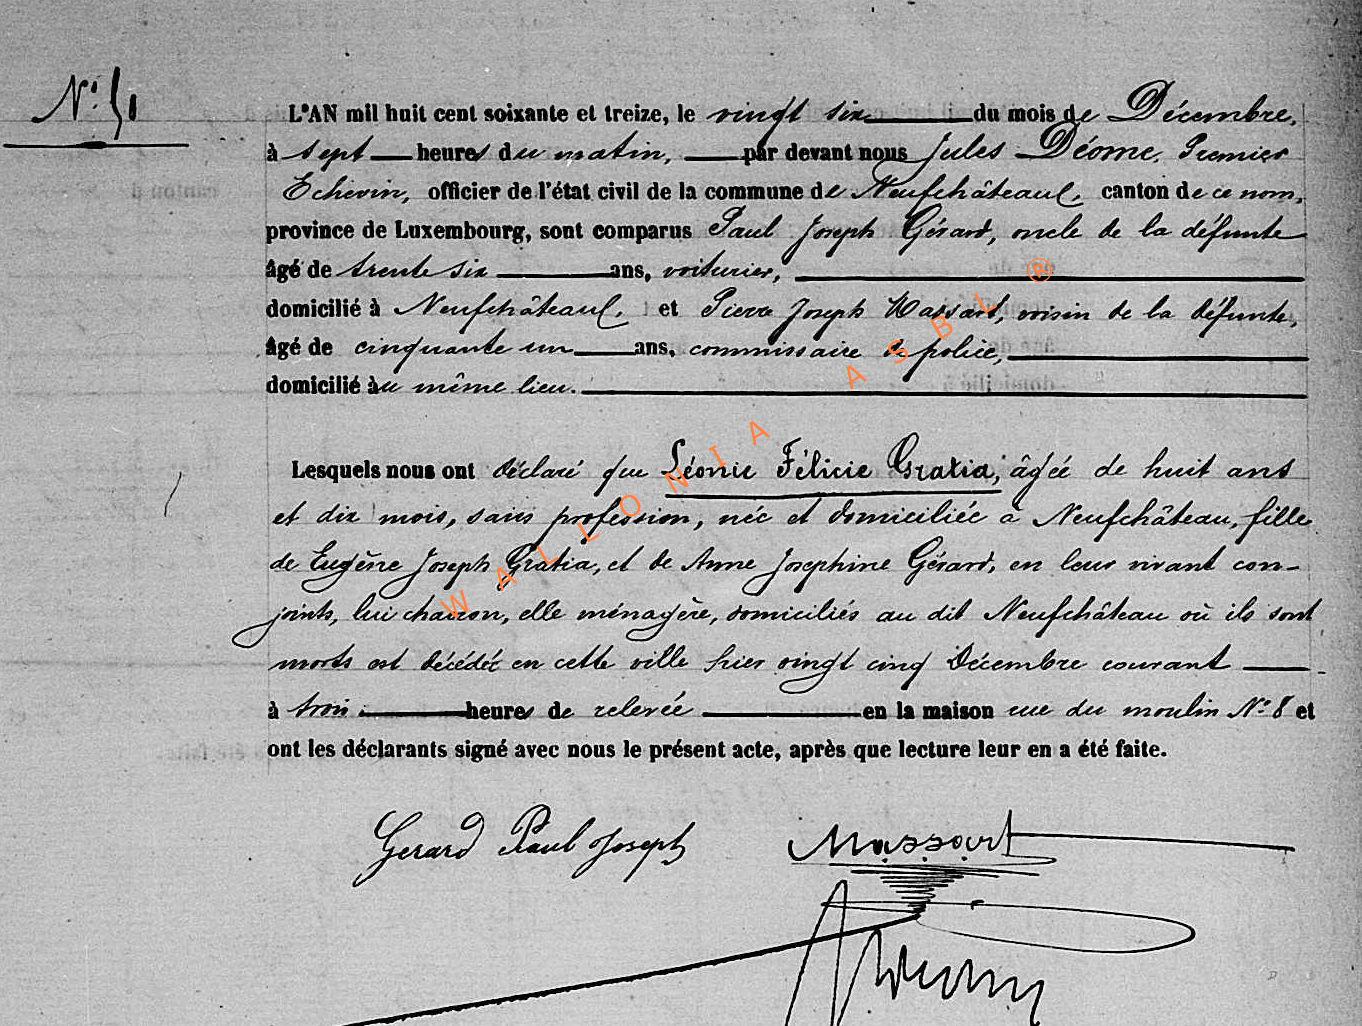 N° 51
L'AN mil huit cent soixante et treize, le vingt six du mois de Décembre,
à sept heures du matin, par devant nous Jules Déome, Premier
Echevin, officier de l'état civil de la commune de Neufchâteau, canton de ce nom,
province de Luxembourg, sont comparus Paul Joseph Gérard, oncle de la défunte
âgé de trente six ans, voiturier,
domicilié à Neufchâteau, et Pierre Joseph Massart, voisin de la défunte,
âgé de cinquante un ans, commissaire de police,
domicilié àu même lieu.
Lesquels nous ont déclaré que Léonie Félicie Gratia, âgée de huit ans
et dix mois, sans profession, née et domiciliée à Neufchâteau, fille
de Eugène Joseph Gratia, et de Anne Josephine Gérard, en leur vivant con-
joints, lui charron, elle ménagère, domiciliés au dit Neufchâteau où ils sont
morts est décédée en cette ville hier vingt cinq Décembre courant
à trois heures de relevée en la maison rue du moulin N° 8 et
ont les déclarants signé avec nous le présent acte, après que lecture leur en a été faite.
Gerard Paul Joseph Massart
WALLONIA ASBL ®